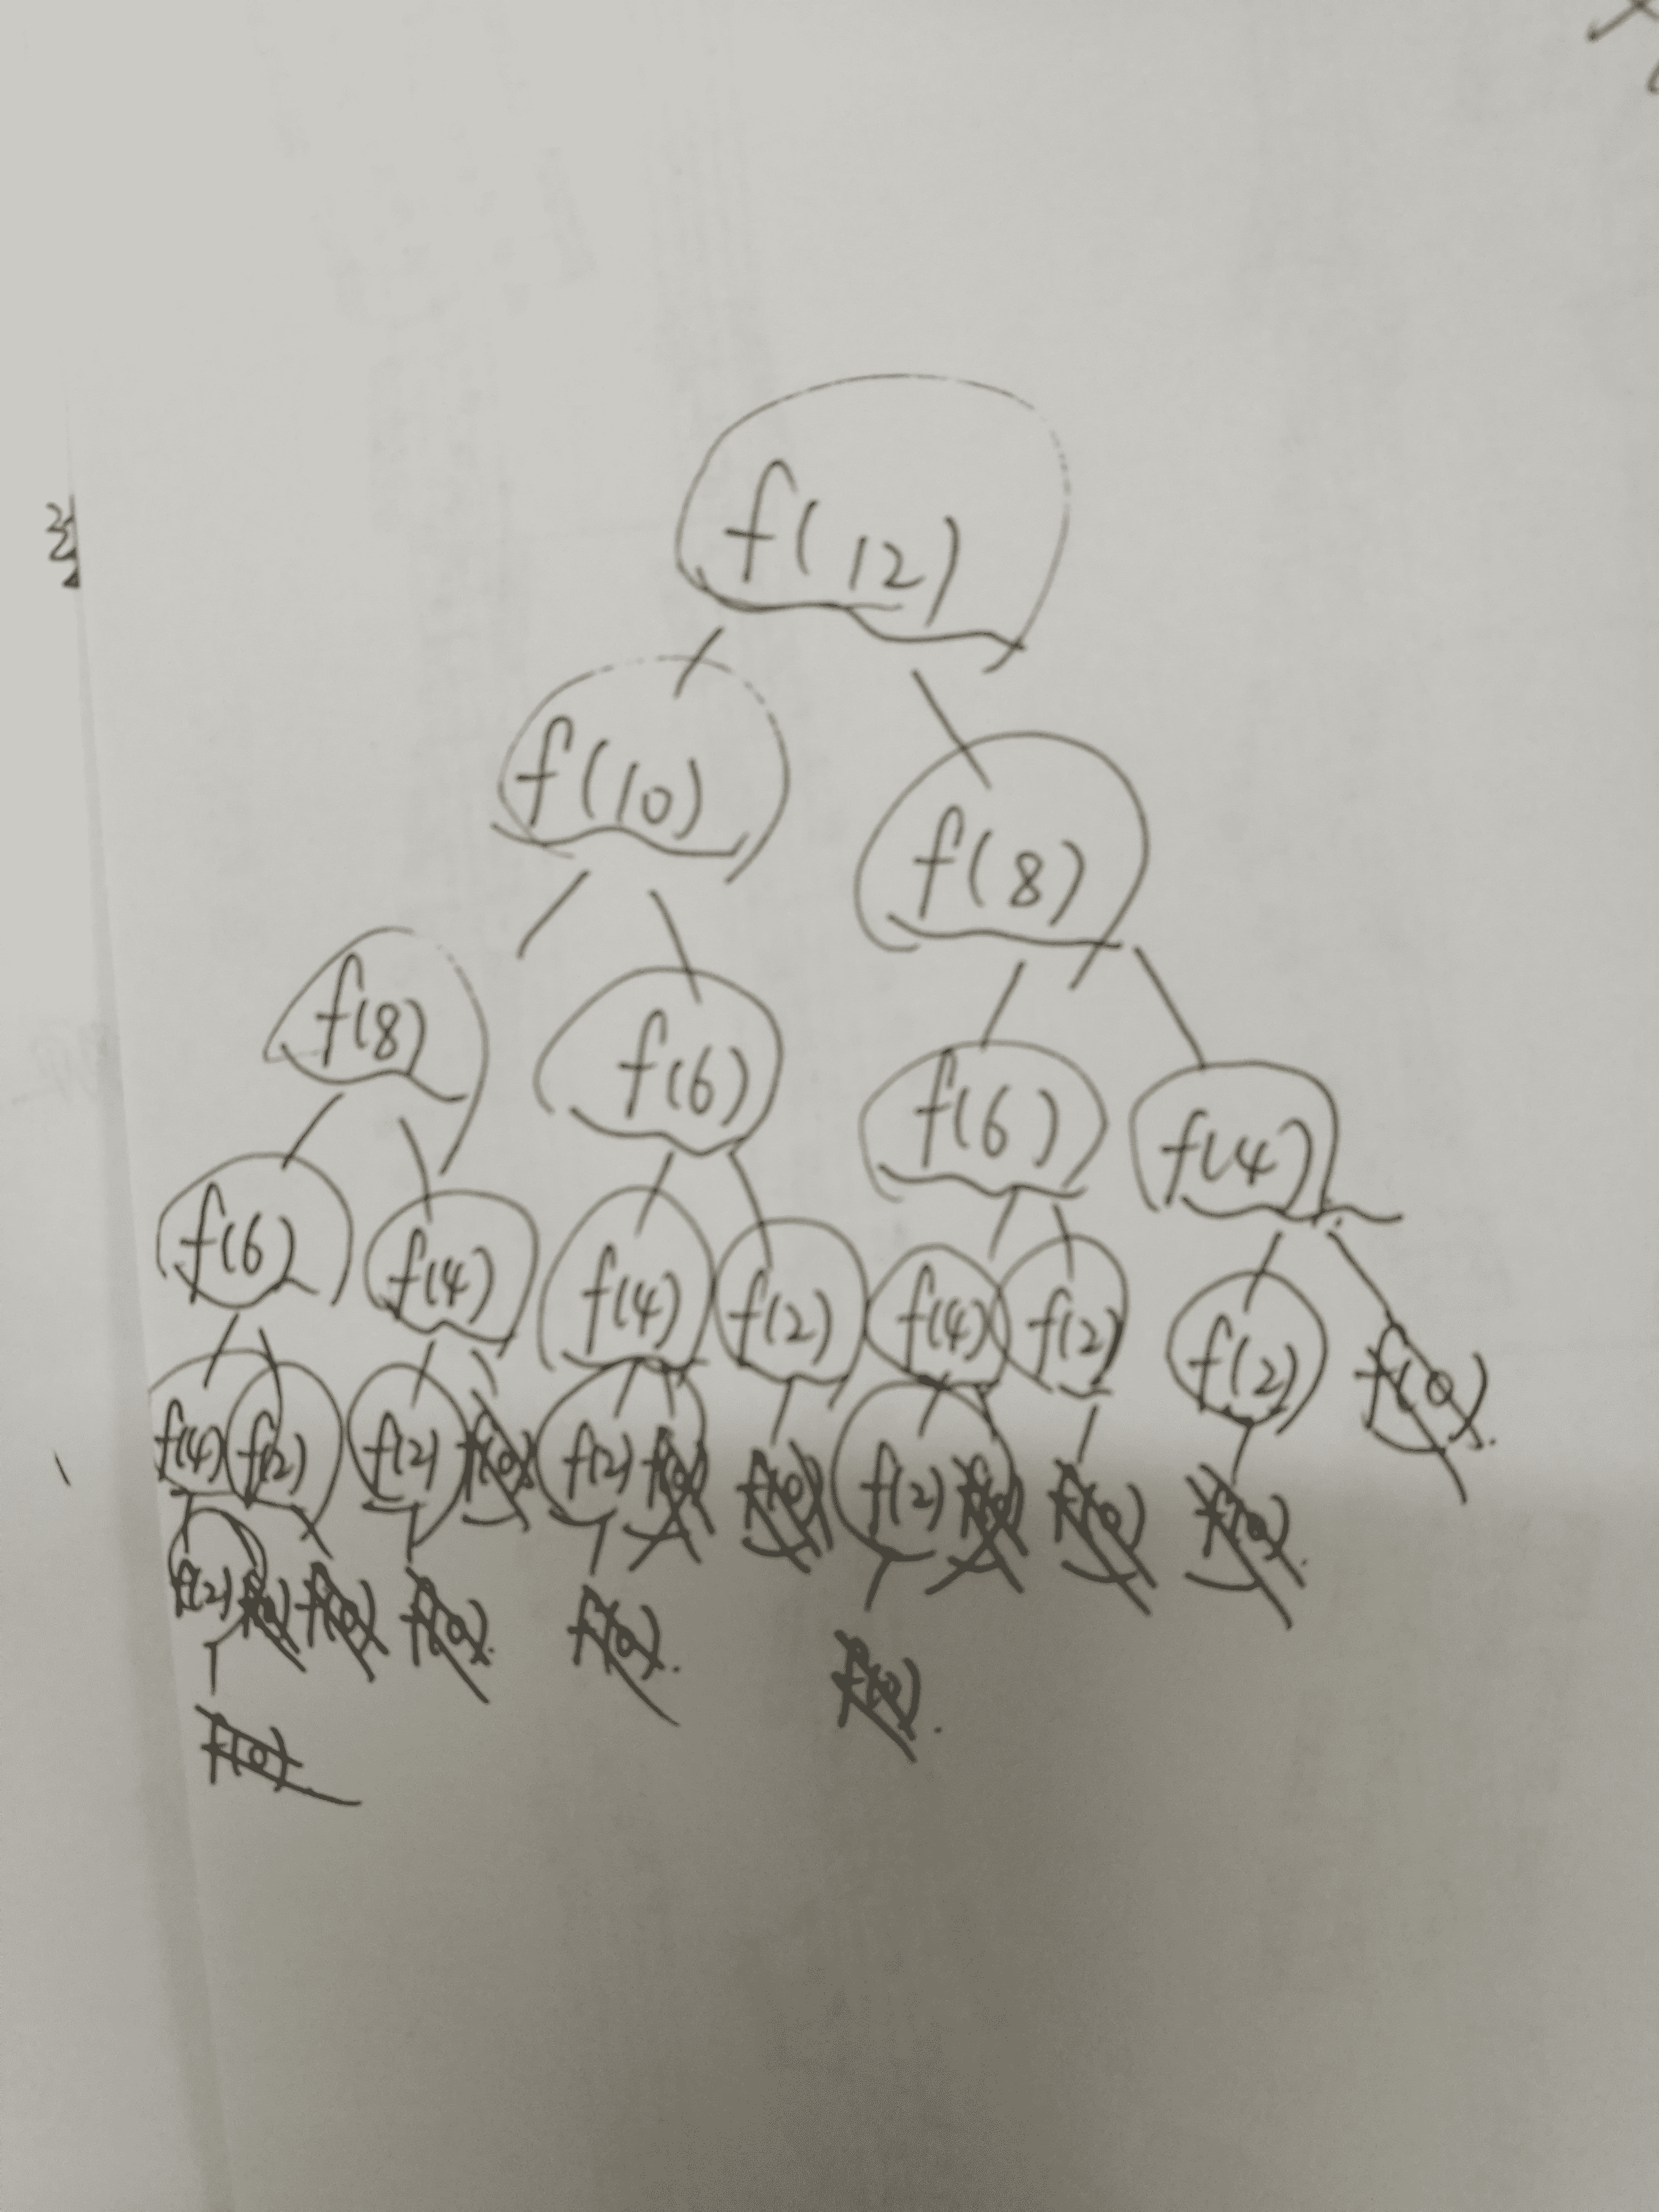 f(12)
f(10) f(8)
f(8) f(6) f(6) f(4)
f(6) f(4) f(4) f(2) f(4) f(2) f(2) f(0)
f(4) f(2) f(2) f(0) f(2) f(0) f(0) f(2) f(0) f(0) f(0)
f(2) f(0) f(0) f(0) f(0) f(0)
f(0)